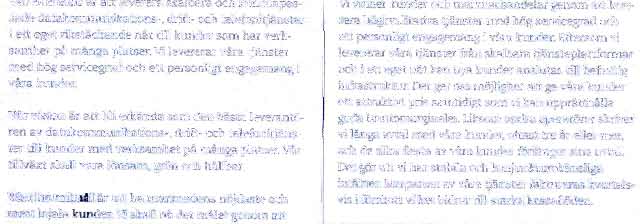 Vår affärsidé är att leverera skalbara och
datakommunikations-, drift- och telefonitjänster
i ett eget rikstäckande nät till kunder som har verk-
samhet på många platser. Vi levererar våra tjänster
med hög servicegrad och ett personligt engagemang i
våra kunder.
Vår vision är att bli erkända som den bästa leverantö-
ren av datakommunikations-, drift- och telefonitjäns-
ter till kunder med verksamhet på många platser. Vår
tillväxt skall vara lönsam, grön och hållbar.
är att ha marknadens nöjdaste och
mest lojala kunder. Vi skall nå det målet genom att
Vi vinner kunder och marknadsandelar genom att
tjänster med hög servicegrad och
ett personligt engagemang i våra kunder. Eftersom vi
levererar våra tjänster från skalbara tjänsteplattformar
och i ett eget nät kan nya kunder anslutas till befintlig
infrastruktur. Det ger oss möjlighet att ge våra kunder
ett attraktivt pris samtidigt som vi kan upprätthålla
goda bruttomarginaler. Liksom andra operatörer skriver
vi långa avtal med våra kunder, oftast tre år eller mer,
och de allra flesta av våra kunder förlänger sina avtal.
Det gör att vi har stabila och
intäkter. Merparten av våra tjänster faktureras kvartals-
vis i förskott vilket bidrar till starka kassaflöden.